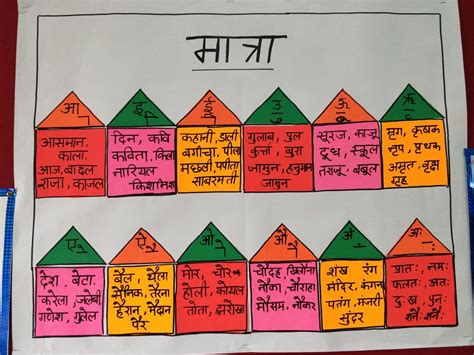 मात्रा
आ
आसमान,
काला,
आज, बादल
राजा, काजल
इ
दिन, कवि
कविता, किला
नारियल
किशमिश
ई
कहानी, डाली
बगीचा, पीला
मछली, पपीता
साबरमती
उ
गुलाब, पुल
कुर्त्ता, बुरा
जामुन, हनुमान
जामुन
ऊ
सूरज, काजू
दूध, स्कूल
तराजू, बबूल
ऋ
मृग, कृषक
नृप, पृथक
अमृत, वृक्ष
गृह
ए
देश, बेटा,
करेला, जलेबी
गणेश, गुलेल
ऐ
बैल, थैला
सैनिक, तैरना
हैरान, मैदान
पैर
ओ
मोर, चोर
होली, कोयल
तोता, झरोखा
औ
चौदह, खिलौना
नौका, चौराहा
मौसम, नौकर
अं
शंख रंग
मंदिर, कंगन
पतंग, मंजरी
सुंदर
अः
प्रातः, नमः
फलतः, अतः
दुःख, पुनः
शनैः शनैः